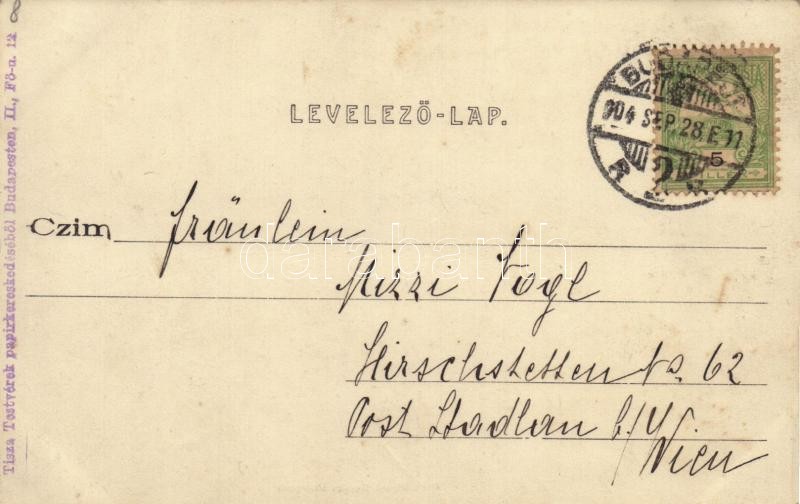 LEVELEZŐ-LAP.
BUDAPEST
904 SEP. 28. E. 11
5
Czim Fräulein
Mizzi Vogl
Hirschstetten No. 62
Post Stadlau b/
Wien
Tisza Testvérek papirkereskedéséből Budapesten, II., Fő-u. 12
8
darabanth